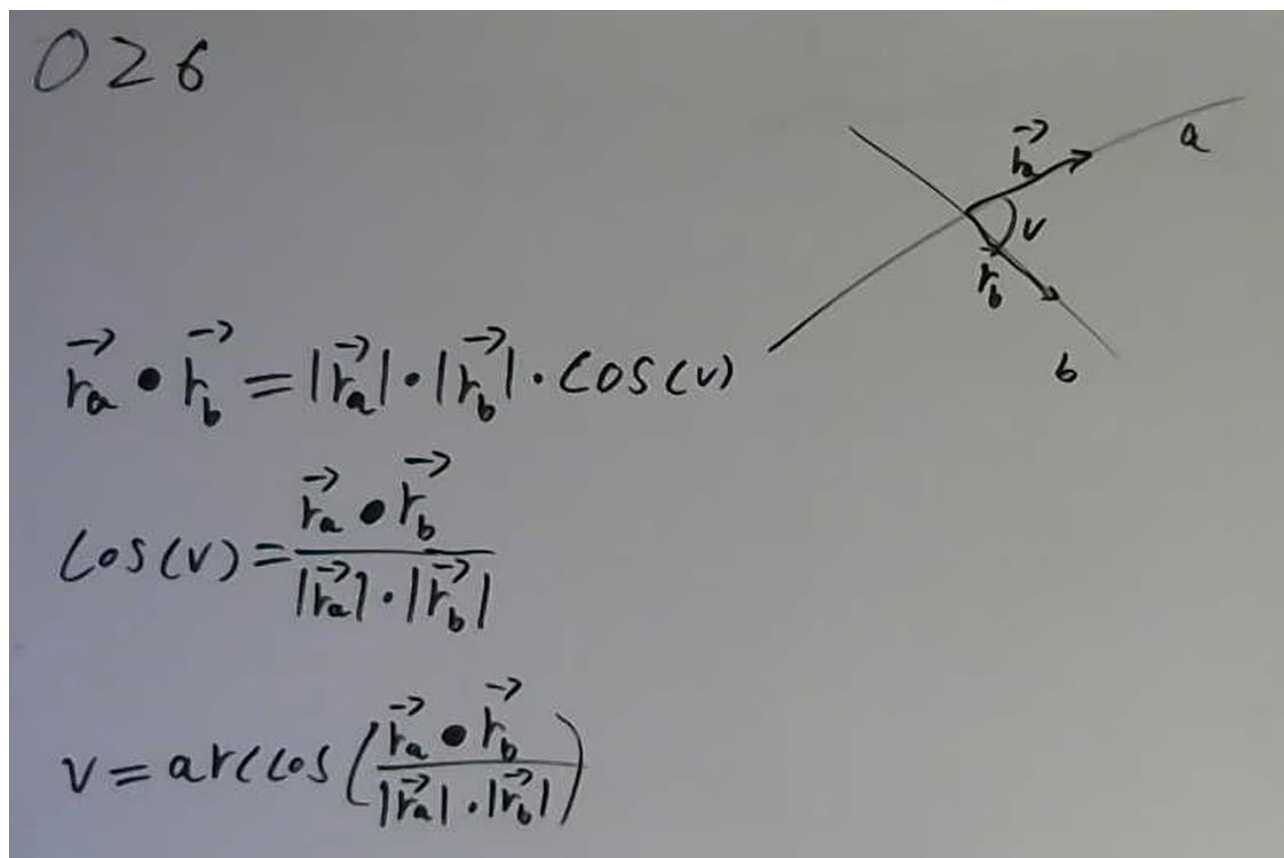 026
r⃗ₐ
a
v
r⃗_b
b
r⃗ₐ • r⃗_b = |r⃗ₐ| · |r⃗_b| · cos(v)
cos(v) = (r⃗ₐ • r⃗_b) / (|r⃗ₐ| · |r⃗_b|)
v = arccos((r⃗ₐ • r⃗_b) / (|r⃗ₐ| · |r⃗_b|))